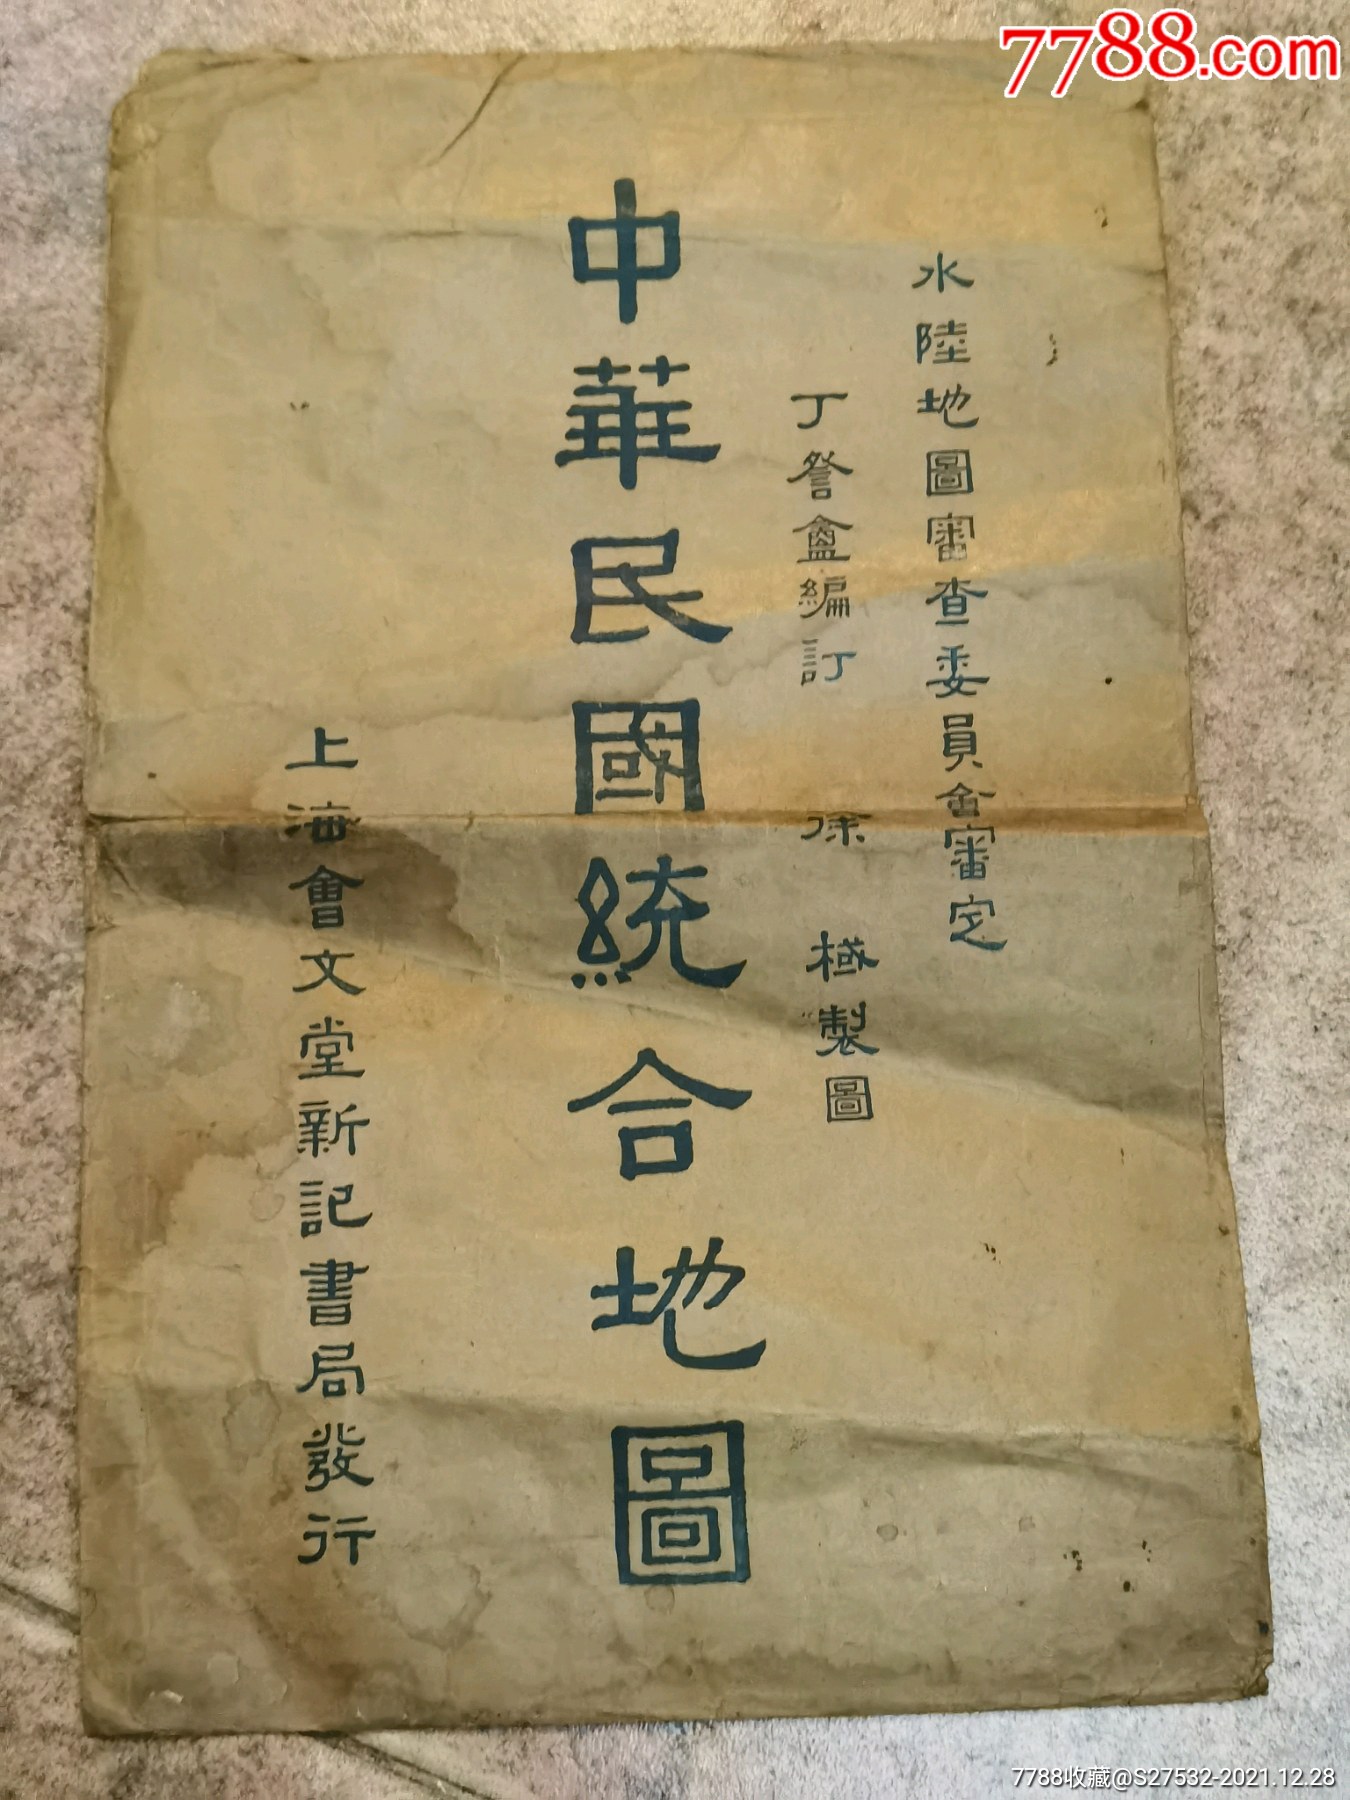 7788.com
水陸地圖審查委員會審定
丁詧盦編訂 徐棫製圖
中華民國統合地圖
上海會文堂新記書局發行
7788收藏@S27532-2021.12.28